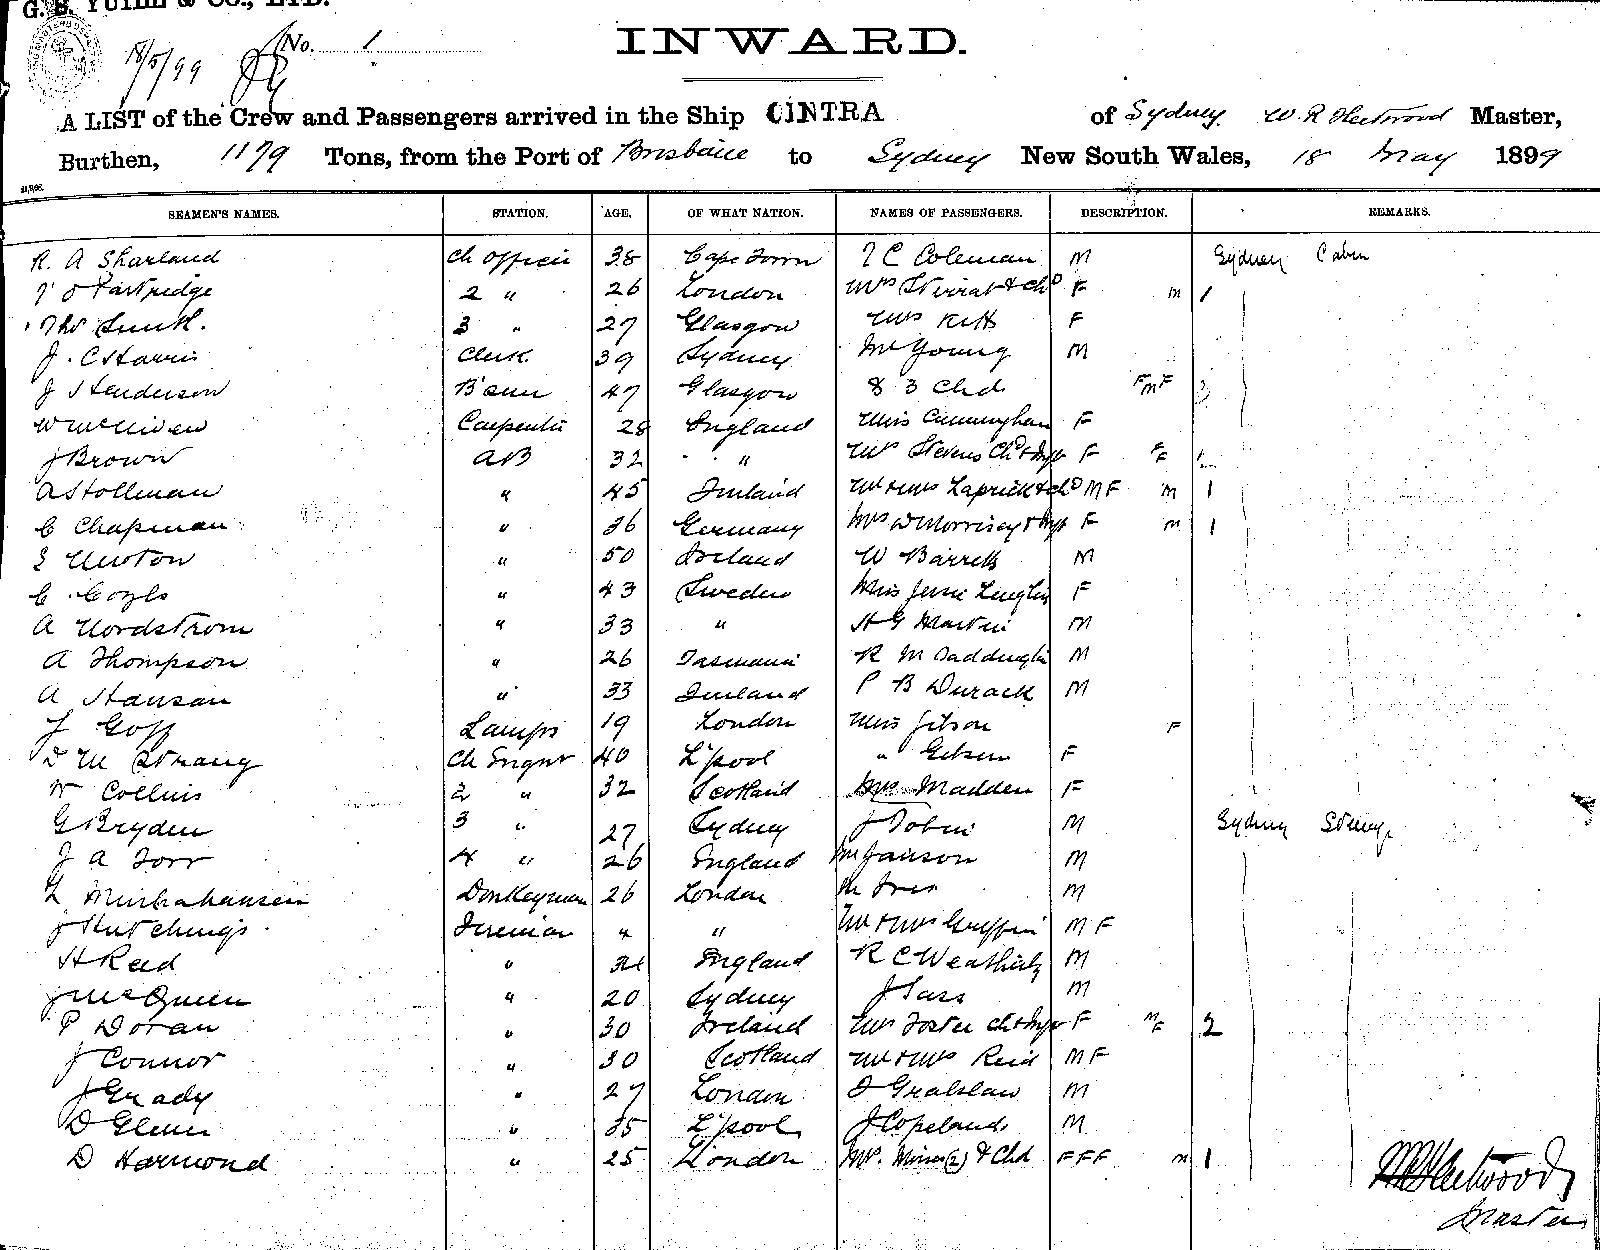 G. S. YUILL & CO., LTD.
18/5/99 No. 1
INWARD.
A LIST of the Crew and Passengers arrived in the Ship CINTRA of Sydney W. R Fleetwood Master,
Burthen, 1179 Tons, from the Port of Brisbane to Sydney New South Wales, 18 May 1899
SEAMEN'S NAMES. STATION. AGE. OF WHAT NATION. NAMES OF PASSENGERS. DESCRIPTION. REMARKS.
R. A Sharland Ch Officer 38 Cape Town C Coleman M Sydney Cabin
Partridge 2 " 26 London Mrs Stirrat & chd F m 1
Thos Smith. 3 " 27 Glasgow Mrs F
J. C Harris Clerk 39 Sydney Mr Young M
J Henderson B'sun 47 Glasgow & 3 Chd F M F 3
W McNiven Carpenter 28 England Miss Cunningham F
J Brown AB 32 " Mrs Stevens Chd & Inft F F F
A Hollman " 45 Finland Mr & Mrs Laprick & chd M F m 1
C Chapman " 36 Germany Mrs W Morrisey & Inft F m 1
Newton " 50 Ireland W Barrett M
C Coyle " 43 Sweden Miss Jessie F
A Nordstrom " 33 " H G Martin M
A Thompson " 26 Tasmania R M M
A Hansan " 33 Finland P B Durack M
J Goff Lamps 19 London Miss F
D M Strang Ch Engnr 40 L'pool " Gibson F
W Collins 2 " 32 Scotland Madden F
G Bryden 3 " 27 Sydney J Tobin M Sydney
J A Torr 4 " 26 England Mr Janson M
Donkeyman 26 London M
J Hutchings Fireman " " Mr & Mrs Griffin M F
H Reed " England R C Weatherly M
J McQueen " 20 Sydney J M
P Doran " 30 Ireland Mrs Foster chd & Inft F M F 2
J Connor " 30 Scotland Mr & Mrs Reid M F
J Grady " 27 London M
D " 35 L'pool J Copeland M
D Harmond " 25 London (2) & Chd F F F m 1
W R Fleetwood
Master